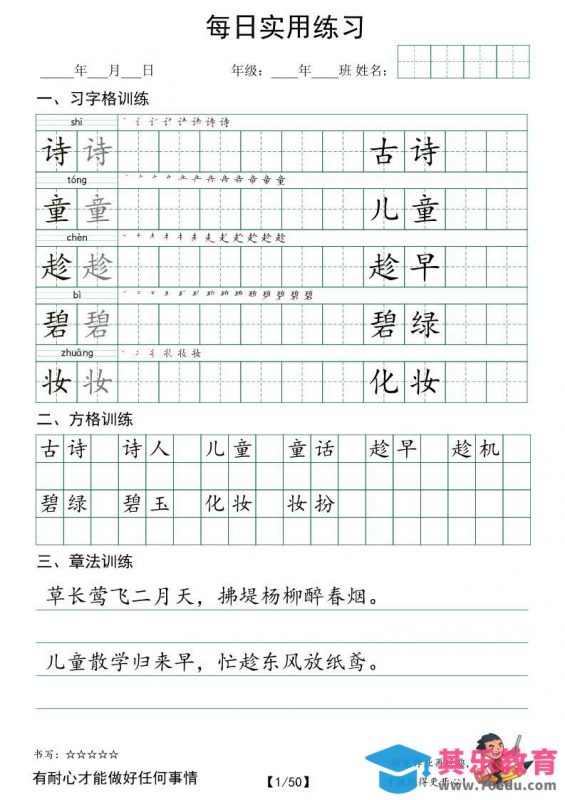 每日实用练习
_____年___月___日 年级：____年____班 姓名：
一、习字格训练
shī
诗 诗 古 诗
tóng
童 童 儿 童
chèn
趁 趁 趁 早
bì
碧 碧 碧 绿
zhuāng
妆 妆 化 妆
二、方格训练
古诗 诗人 儿童 童话 趁早 趁机
碧绿 碧玉 化妆 妆扮
三、章法训练
草长莺飞二月天，拂堤杨柳醉春烟。
儿童散学归来早，忙趁东风放纸鸢。
书写：☆☆☆☆☆
有耐心才能做好任何事情
【1/50】
其乐教育